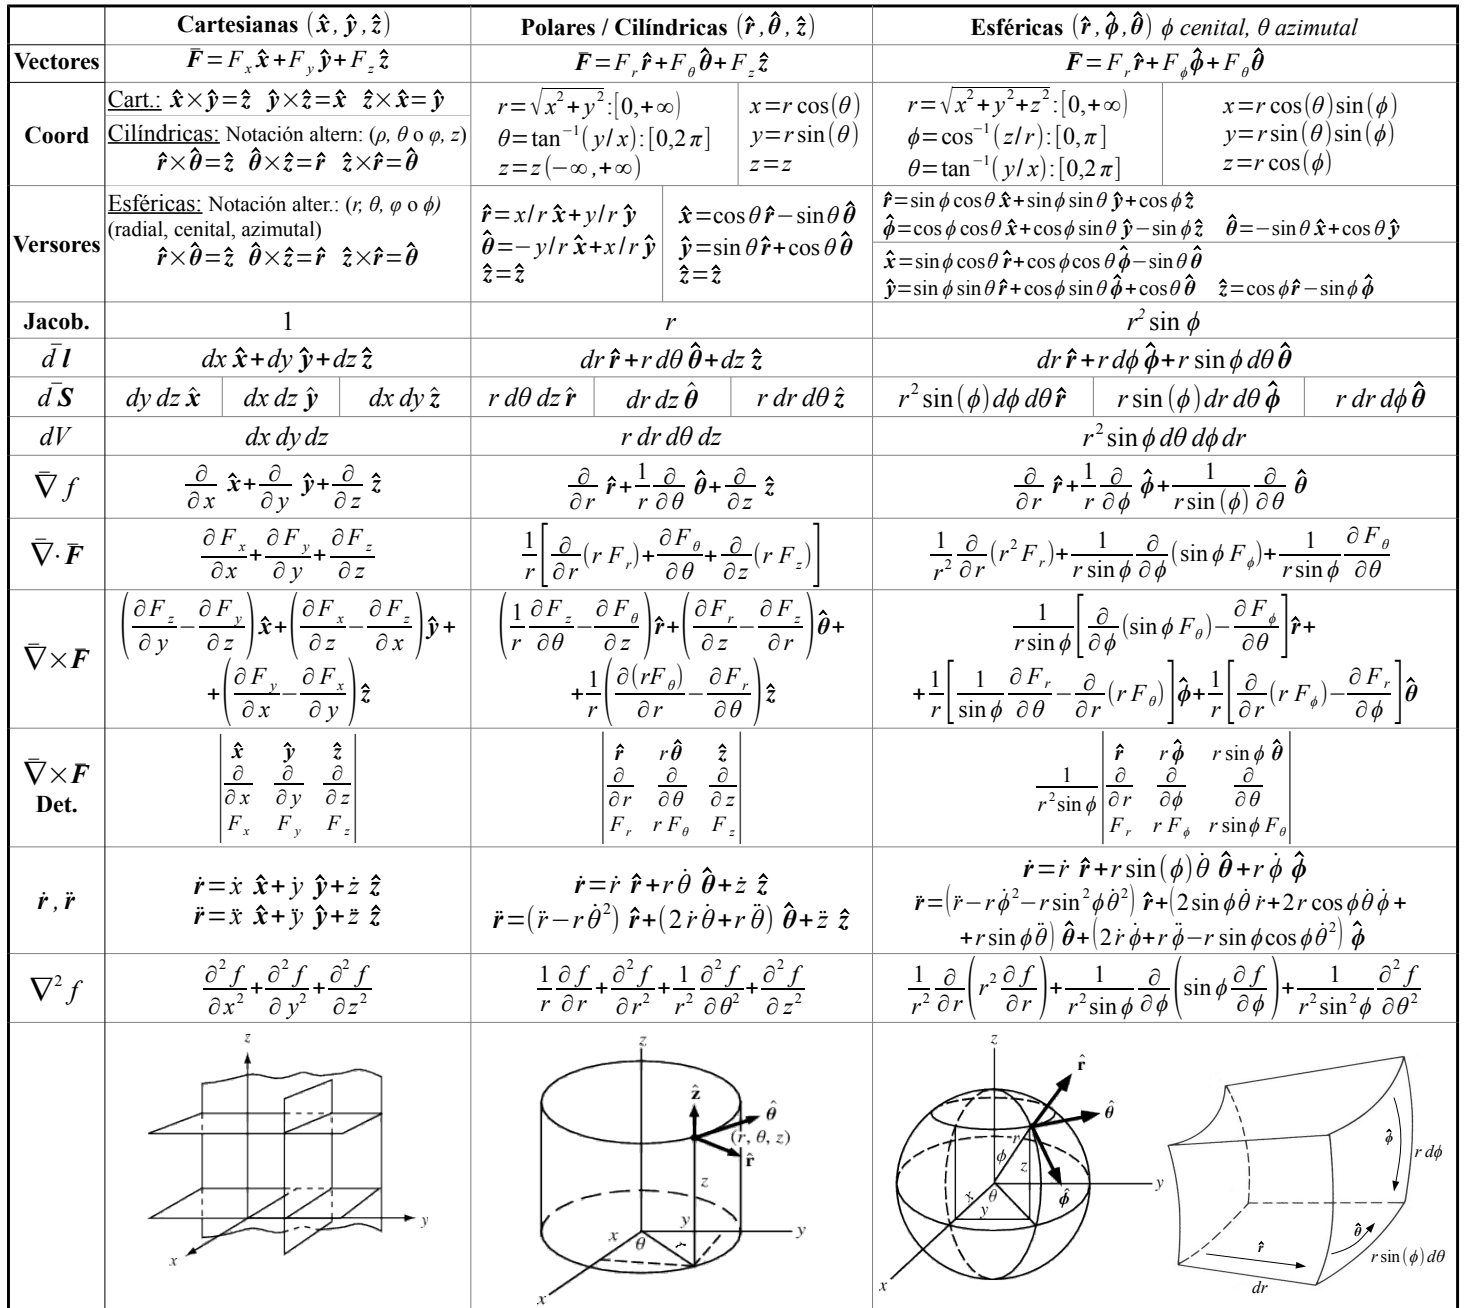 Cartesianas (x̂, ŷ, ẑ)
Polares / Cilíndricas (r̂, θ̂, ẑ)
Esféricas (r̂, ϕ̂, θ̂) ϕ cenital, θ azimutal
Vectores
F̄ = F_x x̂ + F_y ŷ + F_z ẑ
F̄ = F_r r̂ + F_θ θ̂ + F_z ẑ
F̄ = F_r r̂ + F_ϕ ϕ̂ + F_θ θ̂
Coord
Cart.: x̂×ŷ=ẑ ŷ×ẑ=x̂ ẑ×x̂=ŷ
Cilíndricas: Notación altern: (ρ, θ o φ, z)
r̂×θ̂=ẑ θ̂×ẑ=r̂ ẑ×r̂=θ̂
r=√(x²+y²):[0,+∞)
θ=tan⁻¹(y/x):[0,2π]
z=z(−∞,+∞)
x=r cos(θ)
y=r sin(θ)
z=z
r=√(x²+y²+z²):[0,+∞)
ϕ=cos⁻¹(z/r):[0,π]
θ=tan⁻¹(y/x):[0,2π]
x=r cos(θ)sin(ϕ)
y=r sin(θ)sin(ϕ)
z=r cos(ϕ)
Versores
Esféricas: Notación alter.: (r, θ, φ o ϕ)
(radial, cenital, azimutal)
r̂×θ̂=ẑ θ̂×ẑ=r̂ ẑ×r̂=θ̂
r̂=x/r x̂+y/r ŷ
θ̂=−y/r x̂+x/r ŷ
ẑ=ẑ
x̂=cosθ r̂−sinθ θ̂
ŷ=sinθ r̂+cosθ θ̂
ẑ=ẑ
r̂=sinϕ cosθ x̂+sinϕ sinθ ŷ+cosϕ ẑ
ϕ̂=cosϕ cosθ x̂+cosϕ sinθ ŷ−sinϕ ẑ θ̂=−sinθ x̂+cosθ ŷ
x̂=sinϕ cosθ r̂+cosϕ cosθ ϕ̂−sinθ θ̂
ŷ=sinϕ sinθ r̂+cosϕ sinθ ϕ̂+cosθ θ̂ ẑ=cosϕ r̂−sinϕ ϕ̂
Jacob.
1
r
r² sin ϕ
d̄l
dx x̂+dy ŷ+dz ẑ
dr r̂+r dθ θ̂+dz ẑ
dr r̂+r dϕ ϕ̂+r sin ϕ dθ θ̂
d̄S
dy dz x̂
dx dz ŷ
dx dy ẑ
r dθ dz r̂
dr dz θ̂
r dr dθ ẑ
r² sin(ϕ) dϕ dθ r̂
r sin(ϕ) dr dθ ϕ̂
r dr dϕ θ̂
dV
dx dy dz
r dr dθ dz
r² sin ϕ dθ dϕ dr
∇̄ f
∂/∂x x̂+∂/∂y ŷ+∂/∂z ẑ
∂/∂r r̂+1/r ∂/∂θ θ̂+∂/∂z ẑ
∂/∂r r̂+1/r ∂/∂ϕ ϕ̂+1/(r sin(ϕ)) ∂/∂θ θ̂
∇̄·F̄
∂F_x/∂x+∂F_y/∂y+∂F_z/∂z
1/r[∂/∂r(r F_r)+∂F_θ/∂θ+∂/∂z(r F_z)]
1/r² ∂/∂r(r² F_r)+1/(r sin ϕ) ∂/∂ϕ(sin ϕ F_ϕ)+1/(r sin ϕ) ∂F_θ/∂θ
∇̄×F̄
(∂F_z/∂y−∂F_y/∂z)x̂+(∂F_x/∂z−∂F_z/∂x)ŷ+
+(∂F_y/∂x−∂F_x/∂y)ẑ
(1/r ∂F_z/∂θ−∂F_θ/∂z)r̂+(∂F_r/∂z−∂F_z/∂r)θ̂+
+1/r(∂(rF_θ)/∂r−∂F_r/∂θ)ẑ
1/(r sin ϕ)[∂/∂ϕ(sin ϕ F_θ)−∂F_ϕ/∂θ]r̂+
+1/r[1/sin ϕ ∂F_r/∂θ−∂/∂r(r F_θ)]ϕ̂+1/r[∂/∂r(r F_ϕ)−∂F_r/∂ϕ]θ̂
∇̄×F̄
Det.
|x̂ ŷ ẑ|
|∂/∂x ∂/∂y ∂/∂z|
|F_x F_y F_z|
|r̂ rθ̂ ẑ|
|∂/∂r ∂/∂θ ∂/∂z|
|F_r r F_θ F_z|
|r̂ rϕ̂ r sin ϕ θ̂|
1/(r² sin ϕ) |∂/∂r ∂/∂ϕ ∂/∂θ|
|F_r r F_ϕ r sin ϕ F_θ|
ṙ, r̈
ṙ=ẋ x̂+ẏ ŷ+ż ẑ
r̈=ẍ x̂+ÿ ŷ+z̈ ẑ
ṙ=ṙ r̂+r θ̇ θ̂+ż ẑ
r̈=(r̈−r θ̇²) r̂+(2 ṙ θ̇+r θ̈) θ̂+z̈ ẑ
ṙ=ṙ r̂+r sin(ϕ) θ̇ θ̂+r ϕ̇ ϕ̂
r̈=(r̈−r ϕ̇²−r sin²ϕ θ̇²) r̂+(2 sin ϕ θ̇ ṙ+2 r cos ϕ θ̇ ϕ̇+
+r sin ϕ θ̈) θ̂+(2 ṙ ϕ̇+r ϕ̈−r sin ϕ cos ϕ θ̇²) ϕ̂
∇² f
∂²f/∂x²+∂²f/∂y²+∂²f/∂z²
1/r ∂f/∂r+∂²f/∂r²+1/r² ∂²f/∂θ²+∂²f/∂z²
1/r² ∂/∂r(r² ∂f/∂r)+1/(r² sin ϕ) ∂/∂ϕ(sin ϕ ∂f/∂ϕ)+1/(r² sin² ϕ) ∂²f/∂θ²
z
y
x
z
ẑ
θ̂
(r, θ, z)
r̂
z
x
y
θ
r
y
x
z
r̂
θ̂
r
ϕ
z
x
θ
y
ϕ̂
y
x
ϕ̂
r dϕ
θ̂
r̂
r sin(ϕ) dθ
dr